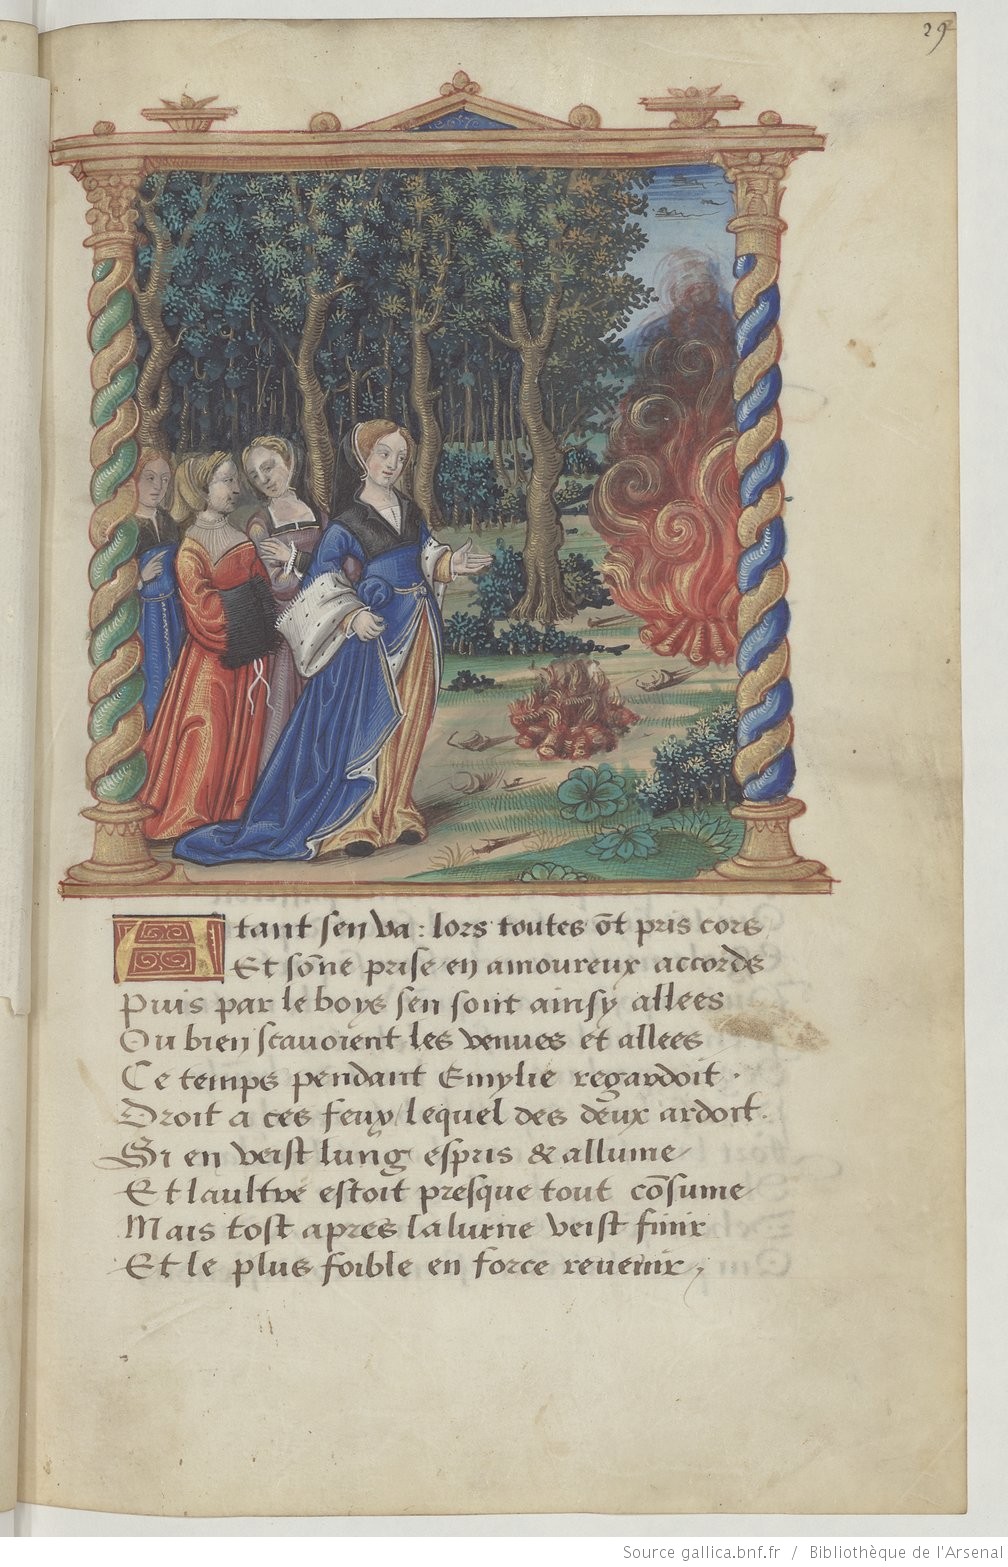 29
Atant sen va : lors toutes õt pris cors
Et sõne prise en amoureux accords
Puis par le boys sen sont ainsy allees
Ou bien scauoient les venues et allees
Ce temps pendant Emylie regardoit .
Droit a ces feux / lequel des deux ardoit .
Si en veist lung espris & allume /
Et laultre estoit presque tout cõsume /
Mais tost apres lalume veist finir
Et le plus foible en force reuenir ,
Source gallica.bnf.fr / Bibliothèque de l'Arsenal